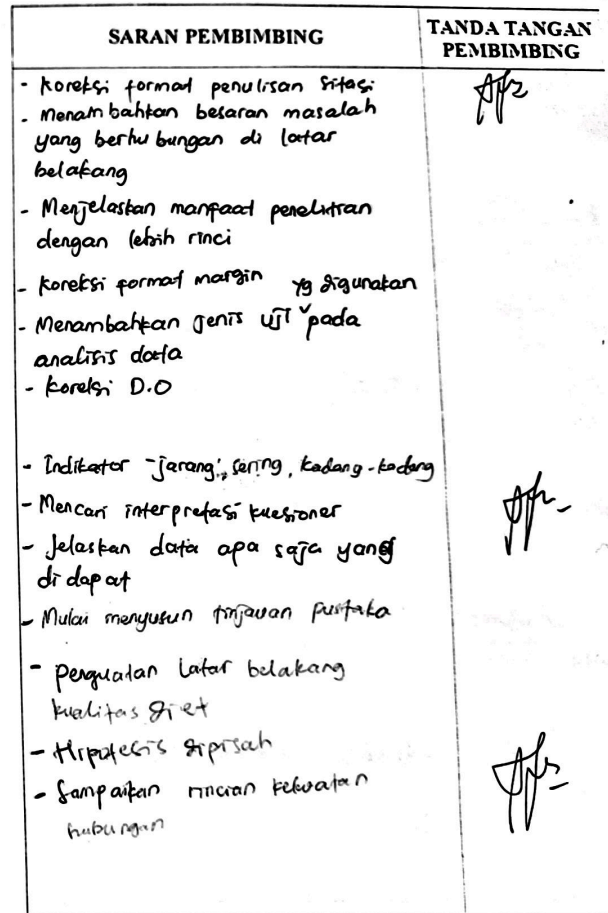 SARAN PEMBIMBING
TANDA TANGAN
PEMBIMBING
- Koreksi format penulisan sitasi
- Menambahkan besaran masalah
yang berhubungan di latar
belakang
- Menjelaskan manfaat penelitian
dengan lebih rinci
- Koreksi format margin
- Menambahkan jenis uji yg digunakan pada
analisis data
- Koreksi D.O
- Indikator "jarang", sering, kadang-kadang
- Mencari interpretasi kuesioner
- Jelaskan data apa saja yang
di dapat
- Mulai menyusun tinjauan pustaka
- Penguatan latar belakang
kualitas diet
- Hipotesis dipisah
- Sampaikan rincian kekuatan
hubungan